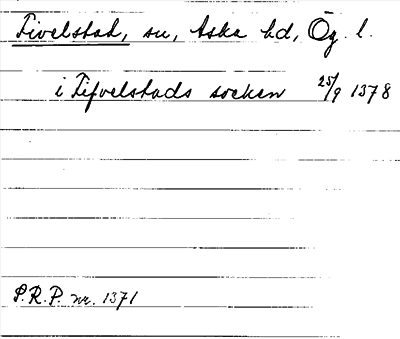 Fivelstad, sn, Aska hd, Ög. l.
i Fifvelstads socken 25/9 1378
S.R.P. nr. 1371